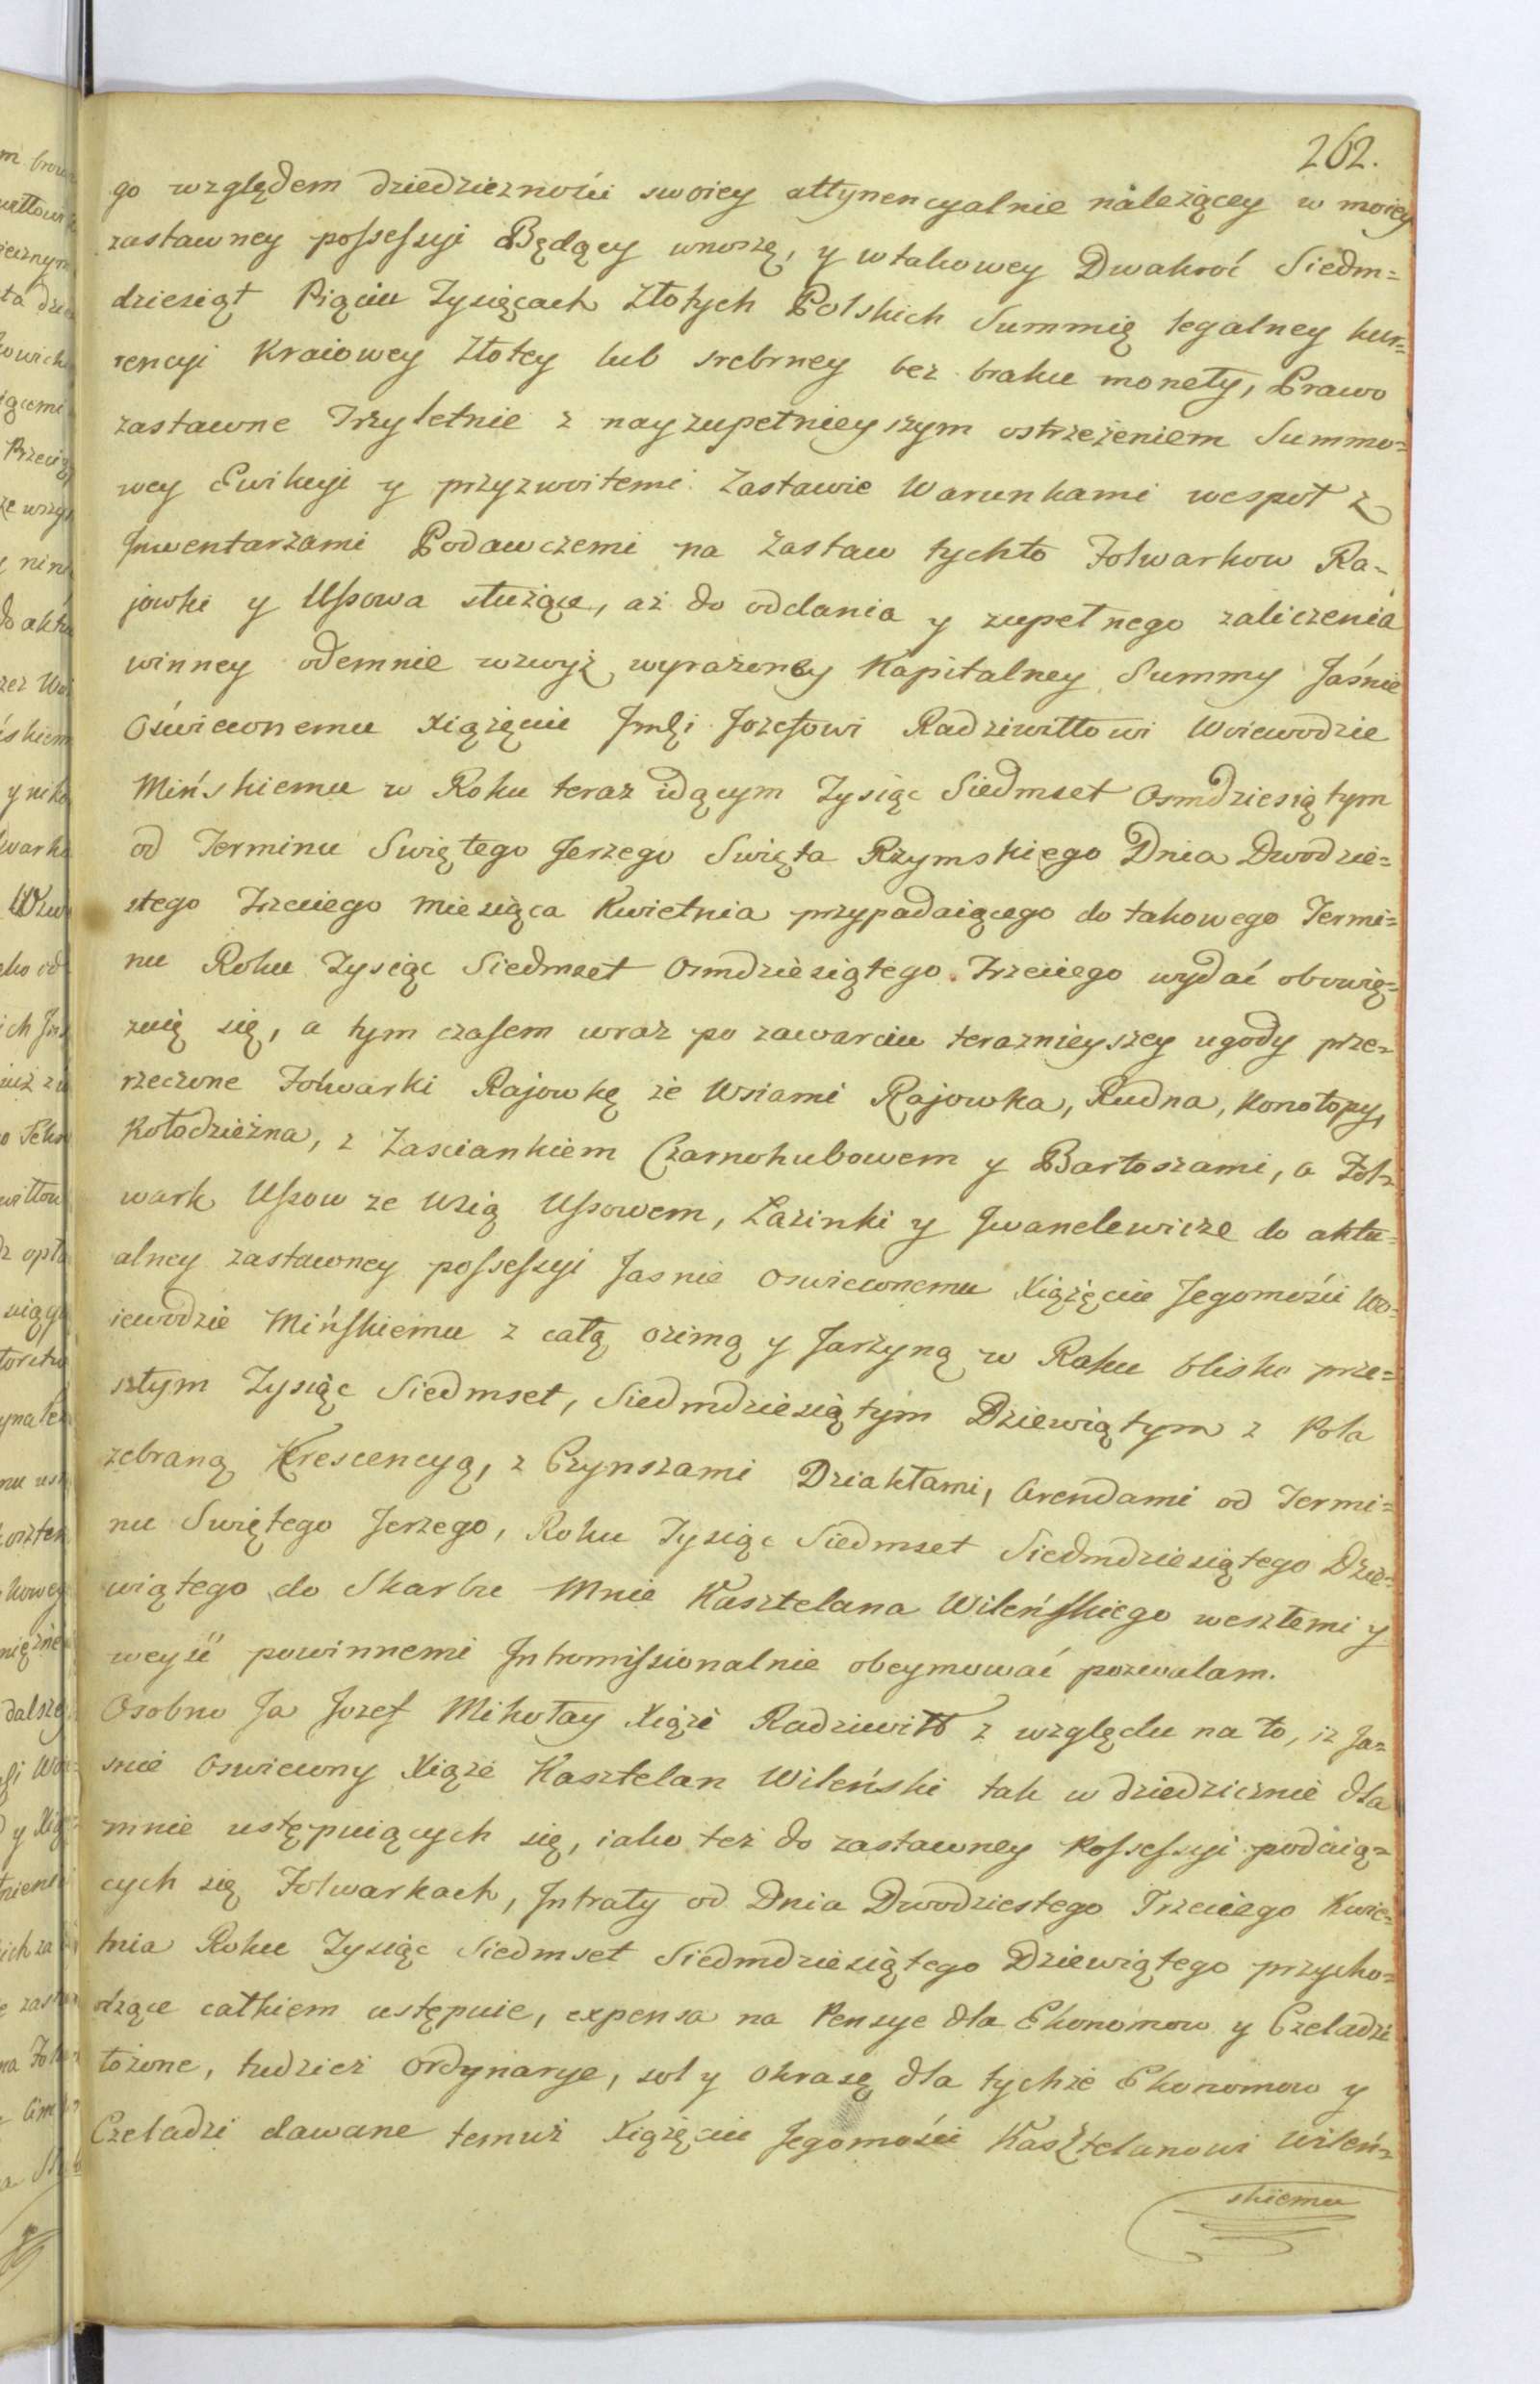 262.
go względem dziedziczności swoiey attynencyalnie należącey w moiey
zastawney possessyi Będący wnoszę, y w takowey Dwakroć Siedm=
dziesiąt Pięciu Tysięcach Złotych Polskich Summię legalney kur=
rencyi Kraiowey złotey lub srebrney bez braku monety, Prawo
zastawne Trzyletnie z nayzupełnieyszym ostrzeżeniem Summo=
wey Ewikcyi y przyzwoitemi Zastawie Warunkami wespoł z
Inwentarzami Podawczemi na Zastaw tychto Folwarkow Ra=
jowki y Ussowa służące, aż do oddania y zupełnego zaliczenia
winney odemnie wzwyż wyrażoney Kapitalney Summy Jaśnie
Oświeconemu Xiążęciu Jmći Jozefowi Radziwiłłowi Woiewodzie
Mińskiemu w Roku teraz idącym Tysiąc Siedmset Osmdziesiątym
od Terminu Swiętego Jerzego Swięta Rzymskiego Dnia Dwodzie=
stego Trzeciego miesiąca Kwietnia przypadaiącego do takowego Termi=
nu Roku Tysiąc Siedmset Osmdziesiątego Trzeciego wydać obowię=
zuię się, a tym czasem wraz po zawarciu teraznieyszey ugody prze=
rzeczone Folwarki Rajowkę ze Wsiami Rajowka, Rudna, Konotopy,
Kołodzieżna, z Zasciankiem Czarnohubowem y Bartoszami, a Fol=
wark Ussow ze Wsią Ussowem, Łazinki y Iwanelewicze do aktu=
alney zastawney possessyi Jasnie Oswieconemu Xiążęciu Jegomości Wo=
iewodzie Mińskiemu z całą ozimą y Jarzyną w Roku blisko prze=
szłym Tysiąc Siedmset, Siedmdziesiątym Dziewiątym z Pola
zebraną Krescencyą, z Czynszami Dziakłami, Arendami od Termi=
nu Swiętego Jerzego, Roku Tysiąc Siedmset Siedmdziesiątego Dzie=
wiątego do Skarbu Mnie Kasztelana Wileńskiego weszłemi y
weyść powinnemi Intromissionalnie obeymować pozwalam.
Osobno Ja Jozef Mikołay Xiąże Radziwiłł z względu na to, iż Ja=
snie Oswiecony Xiąże Kasztelan Wileński tak w dziedzicznie dla
mnie ustępuiących się, iako też do zastawney Possessyi podaią=
cych się Folwarkach, Intraty od Dnia Dwodziestego Trzeciego Kwie=
tnia Roku Tysiąc Siedmset Siedmdziesiątego Dziewiątego przycho=
dzące całkiem ustępuie, expensa na Pensye dla Ekonomow y Czeladzi
łożone, tudzież Ordynarye, sol y Okrasę dla tychże Ekonomow y
Czeladzi dawane temuż Xiążęciu Jegomości Kasztelanowi Wileń=
skiemu